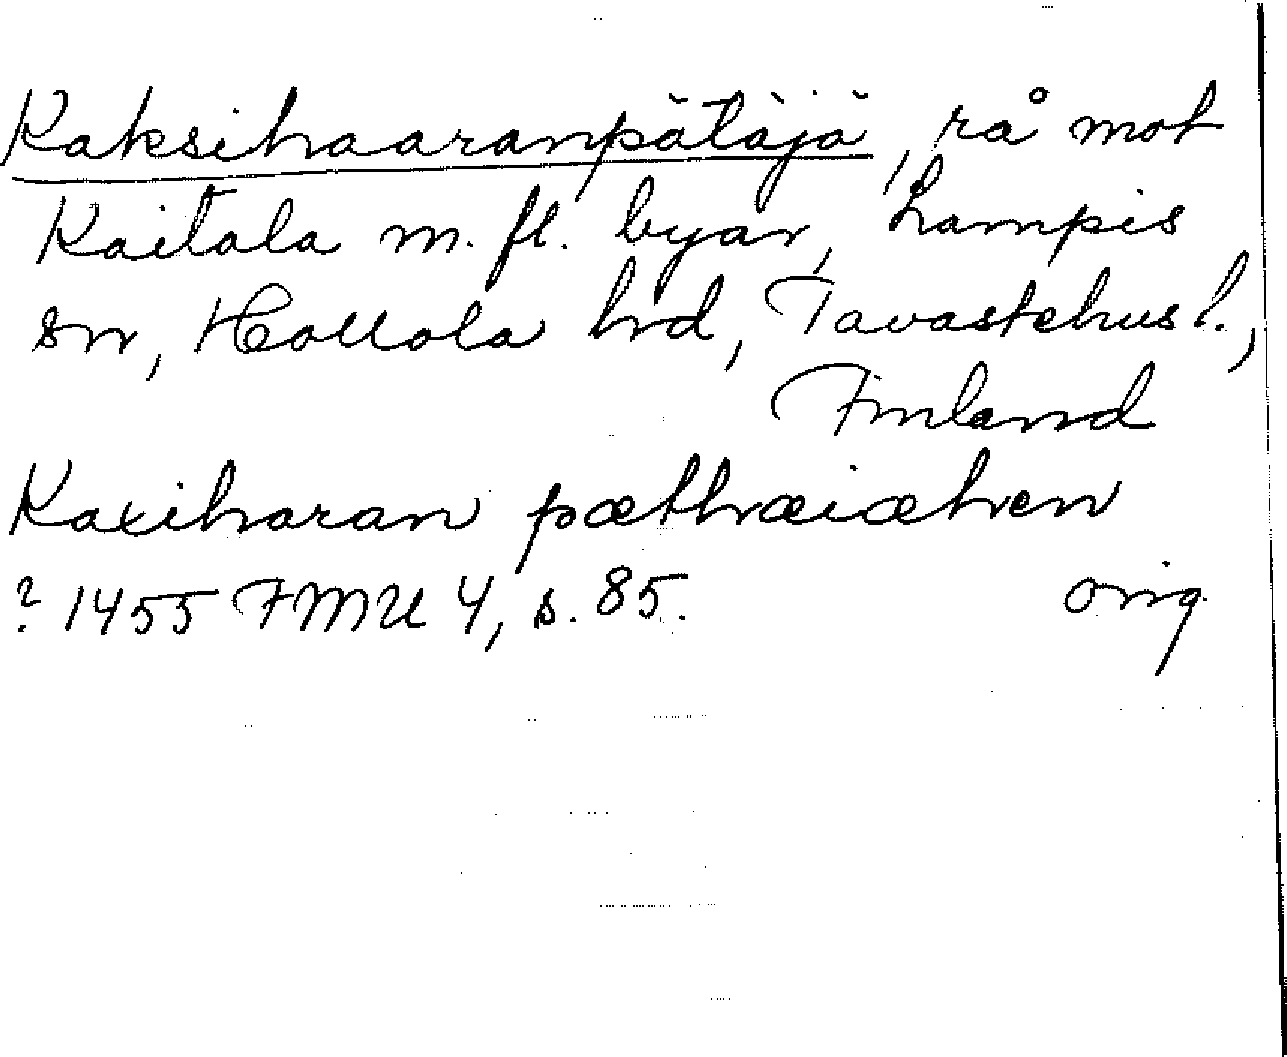 Kaksihaaranpätäjä, rå mot
Kaitala m. fl. byar, Lampis
sn, Hollola hd, Tavastehus l.,
Finland
Kaxiharan pæthæiæhen
? 1455 FMU 4, s. 85. orig